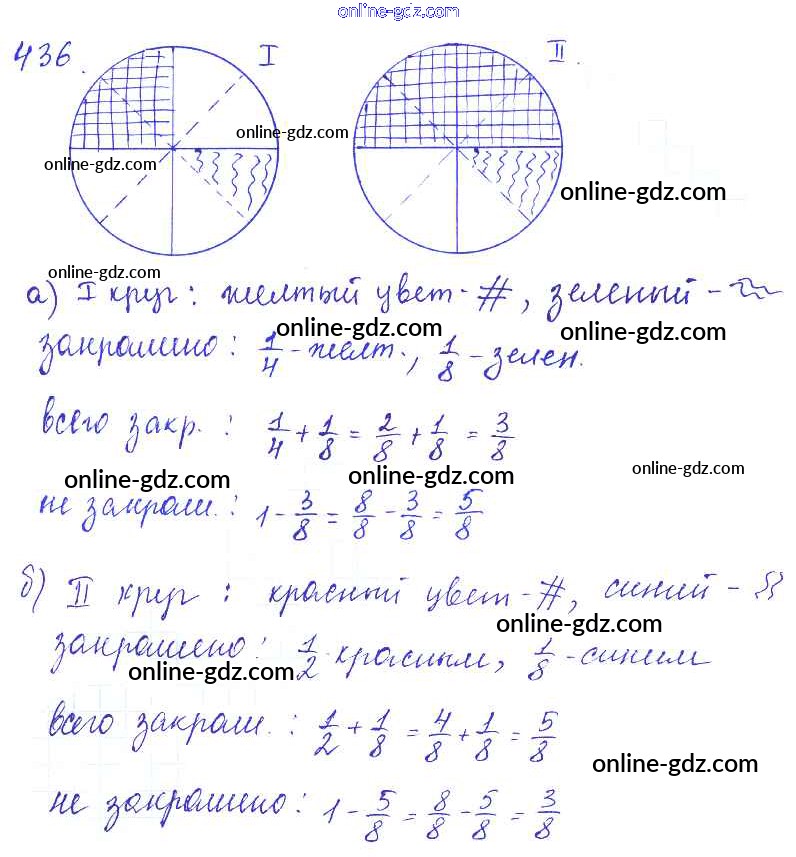 online-gdz.com
436. I II.
online-gdz.com
online-gdz.com
online-gdz.com
online-gdz.com
а) I круг: желтый цвет - #, зеленый -
online-gdz.com online-gdz.com
закрашено: 1/4 - желт., 1/8 - зелен.
всего закр.: 1/4 + 1/8 = 2/8 + 1/8 = 3/8
online-gdz.com online-gdz.com online-gdz.com
не закраш.: 1 - 3/8 = 8/8 - 3/8 = 5/8
б) II круг: красный цвет - #, синий -
online-gdz.com
закрашено: 1/2 красным, 1/8 - синим
online-gdz.com
всего закраш.: 1/2 + 1/8 = 4/8 + 1/8 = 5/8
online-gdz.com
не закрашено: 1 - 5/8 = 8/8 - 5/8 = 3/8